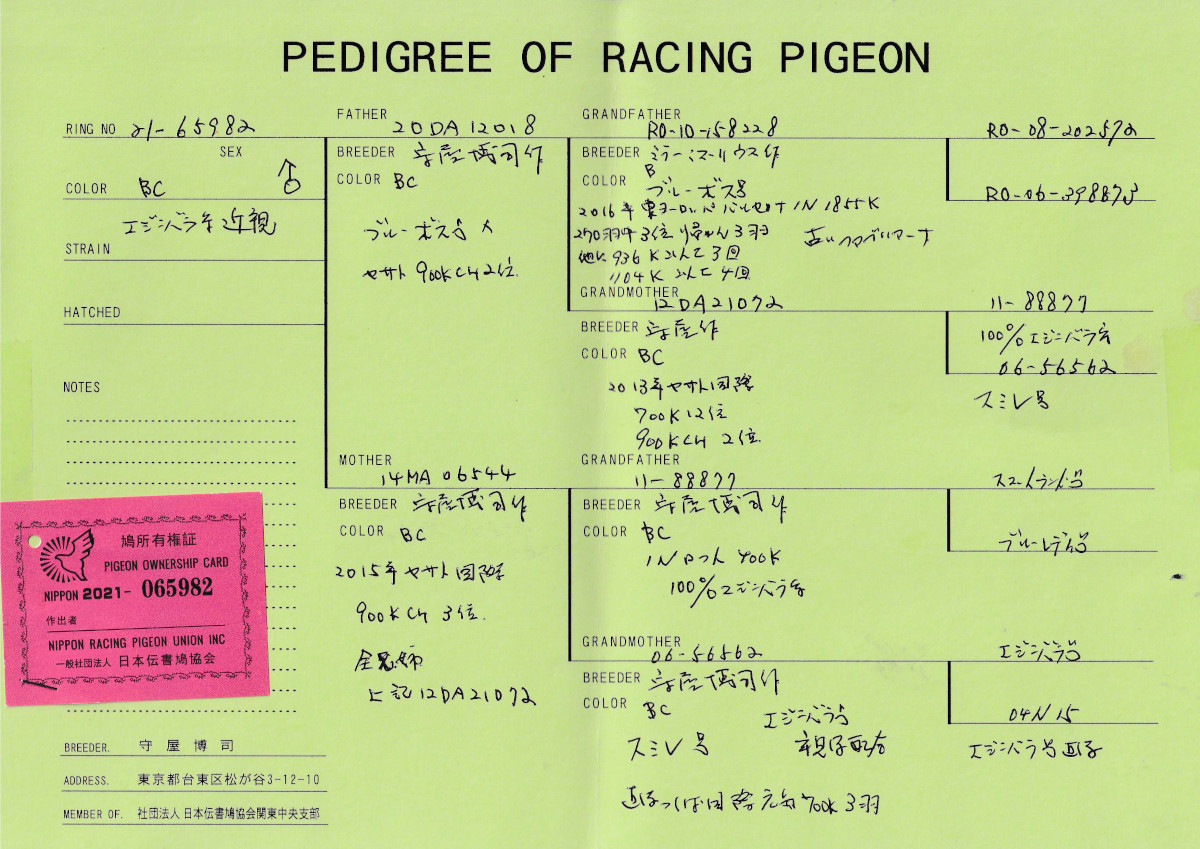 PEDIGREE OF RACING PIGEON
RING NO 21-65982
SEX ♂
COLOR BC
エジンバラ系近親
STRAIN
HATCHED
NOTES
鳩所有権証
PIGEON OWNERSHIP CARD
NIPPON 2021- 065982
作出者
NIPPON RACING PIGEON UNION INC
一般社団法人 日本伝書鳩協会
BREEDER. 守屋博司
ADDRESS. 東京都台東区松が谷3-12-10
MEMBER OF. 社団法人 日本伝書鳩協会関東中央支部
FATHER
20DA12018
BREEDER 守屋博司作
COLOR BC
ブルーボス号 ×
ヤサト 900KCH 2位.
MOTHER
14MA 06544
BREEDER 守屋博司作
COLOR BC
2015年ヤサト国際
900KCH 3位.
全兄姉
上記12DA21072
GRANDFATHER
RO-10-158228
BREEDER ミラー・マーリウス作
COLOR B
ブルーボス号
2016年東ヨーロッパバルセロナIN 1855K
270羽中3位 3羽
他に 936K 3回
1104K 4回
GRANDMOTHER
12DA21072
BREEDER 守屋作
COLOR BC
2013年ヤサト国際
700K12位
900KCH 2位.
GRANDFATHER
11-88877
BREEDER 守屋博司作
COLOR BC
700K
100%エジンバラ系
GRANDMOTHER
06-56562
BREEDER 守屋博司作
COLOR BC
エジンバラ号
スミレ号 親仔配合
国際 700K 3羽
RO-08-202572
RO-06-398873
11-88877
100%エジンバラ系
06-56562
スミレ号
スコットランド号
ブルーレディ号
エジンバラ号
04N15
エジンバラ号直仔